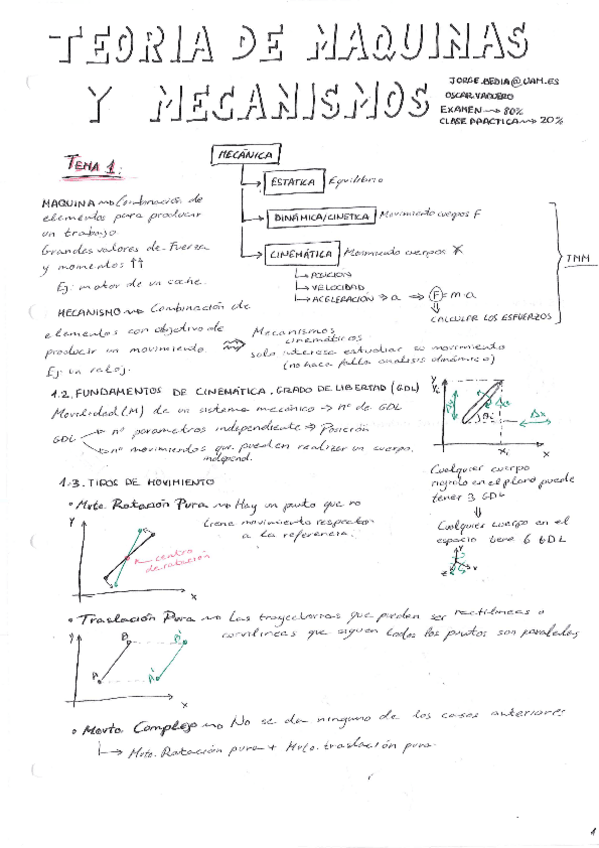 TEORIA DE MAQUINAS
Y MECANISMOS
JORGE.BEDIA@UAM.ES
OSCAR VAQUERO
EXAMEN → 80%
CLASE PRACTICA → 20%
TEMA 1:
MECÁNICA
ESTATICA Equilibrio
DINÁMICA/CINETICA Movimiento cuerpos F
CINEMÁTICA Movimiento cuerpos
POSICIÓN
VELOCIDAD
ACELERACIÓN → a → F = m·a
CALCULAR LOS ESFUERZOS
TMM
MAQUINA → Combinación de
elementos para producir
un trabajo
Grandes valores de Fuerza
y momentos ↑↑
Ej: motor de un coche.
MECANISMO → Combinación de
elementos con objetivo de
producir un movimiento
Ej: un reloj.
Mecanismos
cinemáticos
solo interesa estudiar su movimiento
(no hace falta analisis dinámico)
1.2. FUNDAMENTOS DE CINEMÁTICA. GRADO DE LIBERTAD (GDL)
Movilidad (M) de un sistema mecánico → nº de GDL
GDL
nº parametros independiente → Posición
nº movimientos que pueden realizar un cuerpo.
independ.
Y
Yi
θi
Δx
Xi
x
Cualquier cuerpo
rigido en el plano puede
tener 3 GDL
⇓
Cualquier cuerpo en el
espacio tiene 6 GDL
1.3. TIPOS DE MOVIMIENTO
• Mvto. Rotación Pura → Hay un punto que no
tiene movimiento respecto
a la referencia.
Y
centro
de rotación
x
• Traslación Pura → Las trayectorias que pueden ser rectilineas o
curvilineas que siguen todos los puntos son paralelas
Y
B
B'
A
A'
x
• Movto Complejo → No se da ninguno de los casos anteriores
→ Mvto. Rotación pura + Mvto. traslación pura.
1